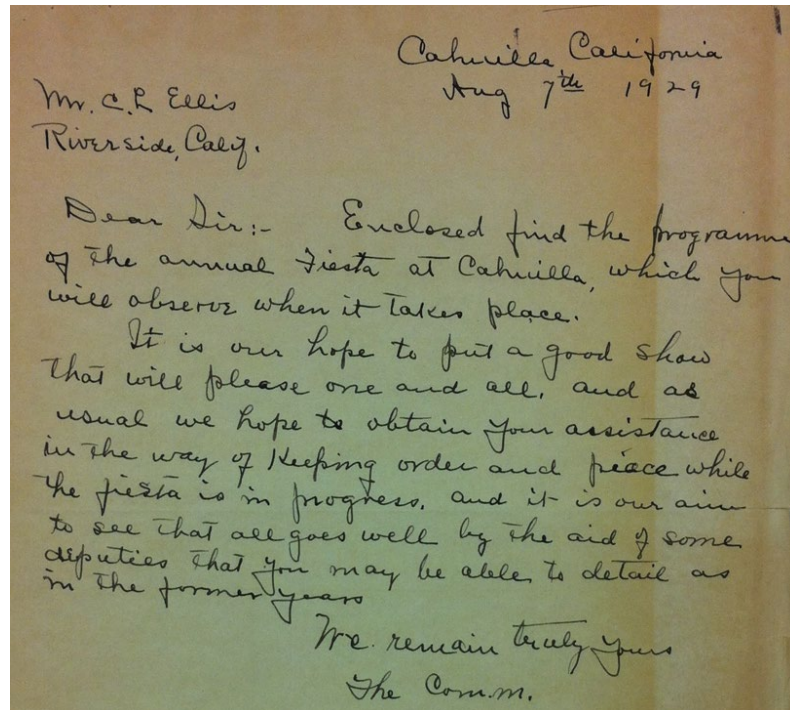 Cahuilla, California
Aug 7th 1929
Mr. C. L Ellis
Riverside, Calif.
Dear Sir:- Enclosed find the programme
of the annual Fiesta at Cahuilla, which you
will observe when it takes place.
It is our hope to put a good show
that will please one and all, and as
usual we hope to obtain your assistance
in the way of Keeping order and peace while
the fiesta is in progress, and it is our aim
to see that all goes well by the aid of some
deputies that you may be able to detail as
in the former years
We remain truly yours
The Comm.